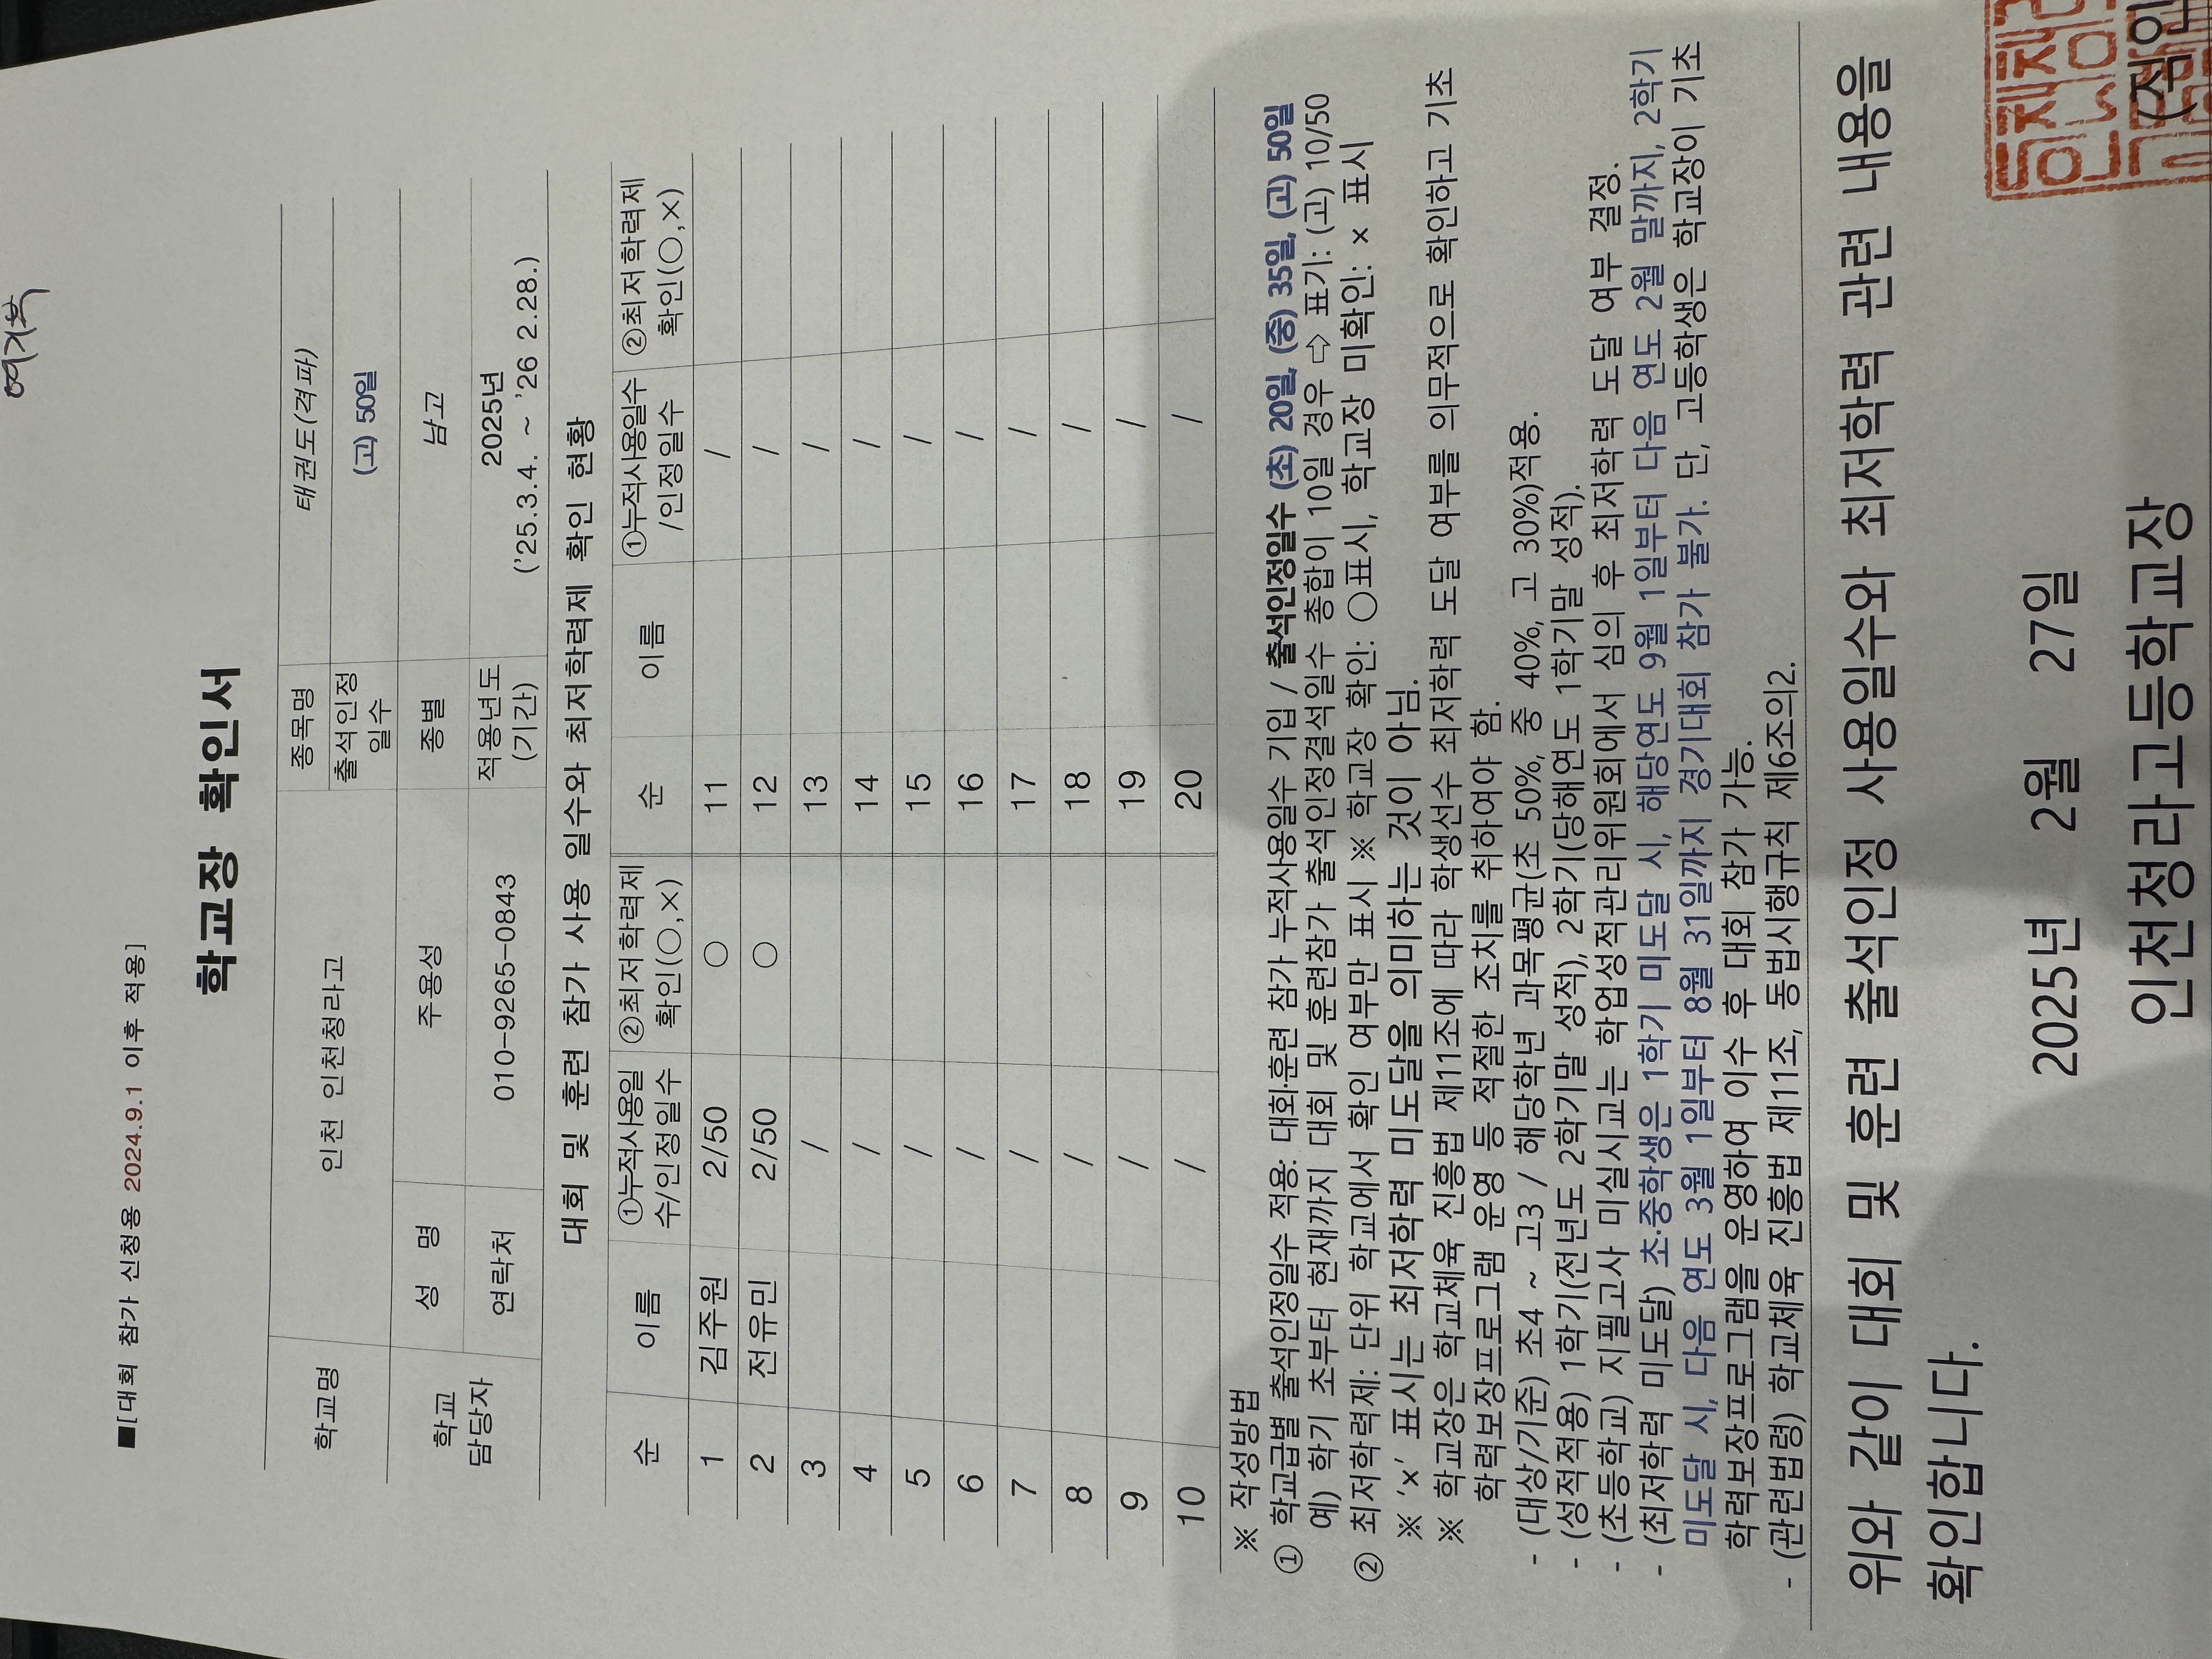 여기부
■[대회 참가 신청용 2024.9.1 이후 적용]
학교장 확인서
학교명 인천 인천청라고 종목명 태권도(격파)
출석인정 일수 (고) 50일
학교 담당자 성 명 주용성 종별 남고
연락처 010-9265-0843 적용년도 (기간) 2025년 ('25.3.4. ~ '26 2.28.)
대회 및 훈련 참가 사용 일수와 최저학력제 확인 현황
순 이름 ①누적사용일수/인정일수 ②최저학력제 확인(○,×) 순 이름 ①누적사용일수/인정일수 ②최저학력제 확인(○,×)
1 김주원 2/50 ○ 11 /
2 전유민 2/50 ○ 12 /
3 / 13 /
4 / 14 /
5 / 15 /
6 / 16 /
7 / 17 /
8 / 18 /
9 / 19 /
10 / 20 /
※ 작성방법
① 학교급별 출석인정일수 적용: 대회·훈련 참가 누적사용일수 기입 / 출석인정일수 (초) 20일, (중) 35일, (고) 50일
예) 학기 초부터 현재까지 대회 및 훈련참가 출석인정결석일수 총합이 10일 경우 ⇨ 표기: (고) 10/50
② 최저학력제: 단위 학교에서 확인 여부만 표시 ※ 학교장 확인: ○표시, 학교장 미확인: × 표시
※ ‘×’ 표시는 최저학력 미도달을 의미하는 것이 아님.
※ 학교장은 학교체육 진흥법 제11조에 따라 학생선수 최저학력 도달 여부를 의무적으로 확인하고 기초
학력보장프로그램 운영 등 적절한 조치를 취하여야 함.
- (대상/기준) 초4 ~ 고3 / 해당학년 과목평균(초 50%, 중 40%, 고 30%)적용.
- (성적적용) 1학기(전년도 2학기말 성적), 2학기(당해연도 1학기말 성적).
- (초등학교) 지필고사 미실시교는 학업성적관리위원회에서 심의 후 최저학력 도달 여부 결정.
- (최저학력 미도달) 초·중학생은 1학기 미도달 시, 해당연도 9월 1일부터 다음 연도 2월 말까지, 2학기
미도달 시, 다음 연도 3월 1일부터 8월 31일까지 경기대회 참가 불가. 단, 고등학생은 학교장이 기초
학력보장프로그램을 운영하여 이수 후 대회 참가 가능.
- (관련법령) 학교체육 진흥법 제11조, 동법시행규칙 제6조의2.
위와 같이 대회 및 훈련 출석인정 사용일수와 최저학력 관련 내용을
확인합니다.
2025년 2월 27일
인천청라고등학교장 (직인